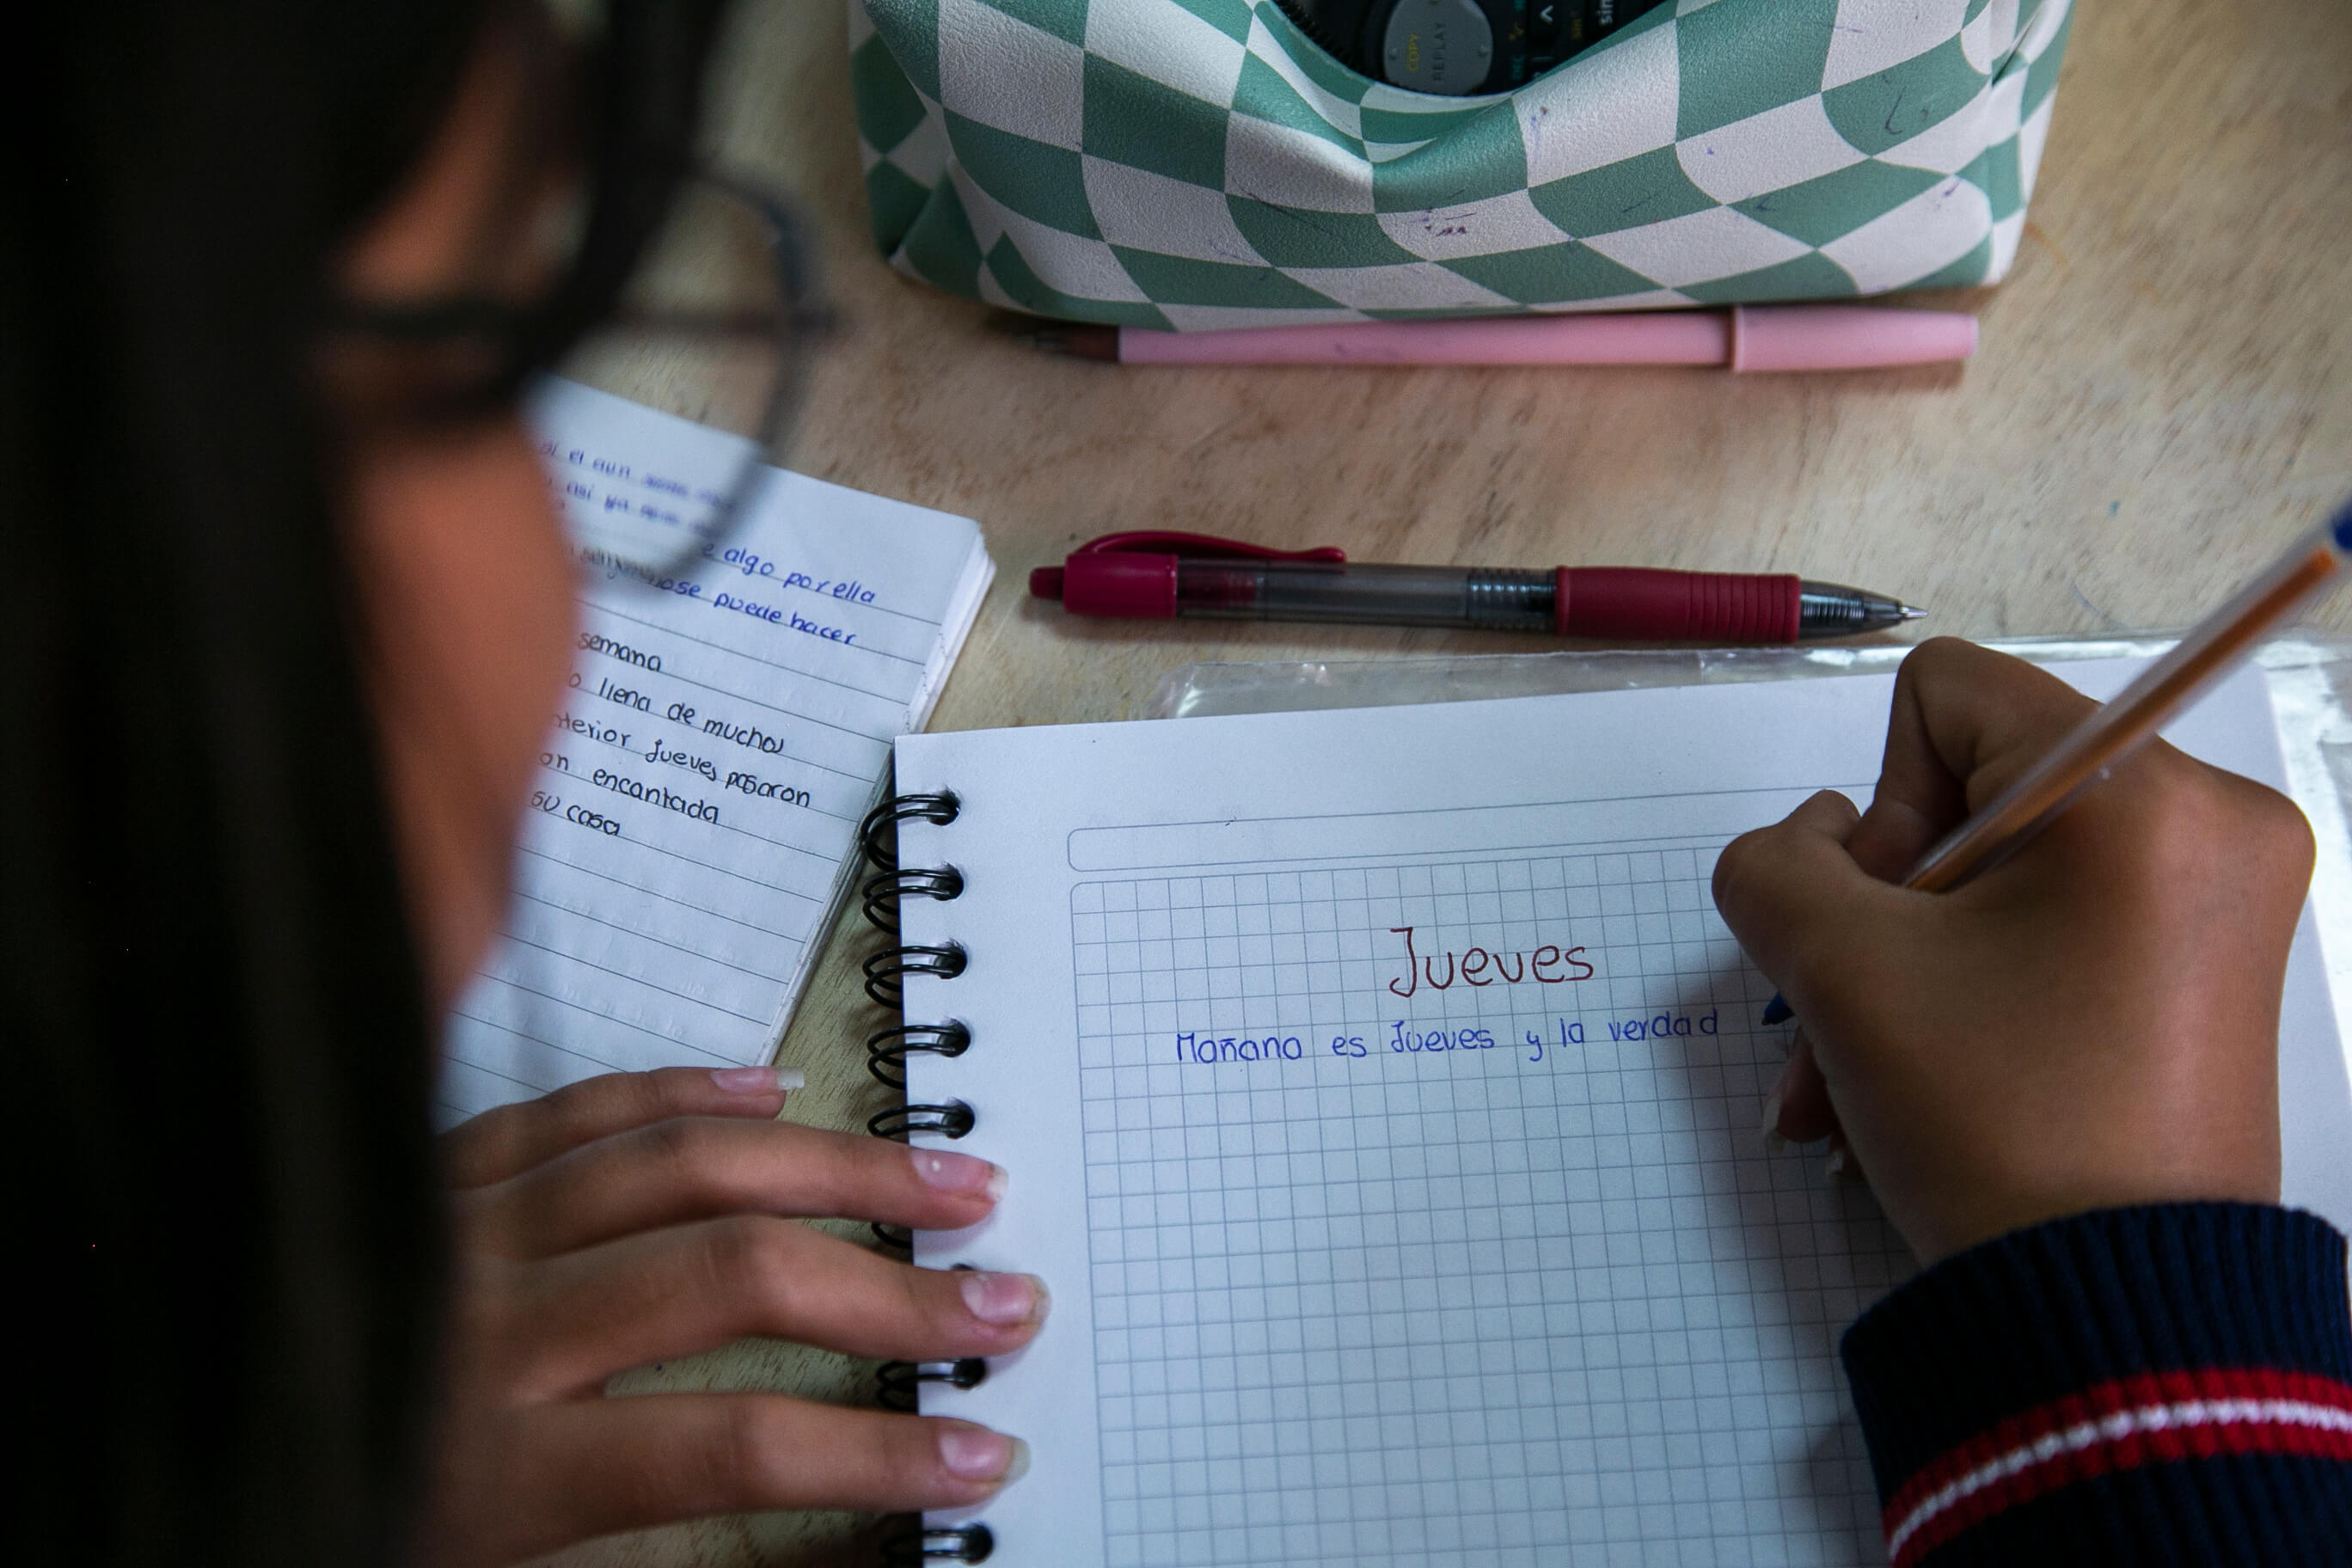 COPY
REPLAY
sin
el aun
así ya
e algo por ella
se puede hacer
semana
llena de muchos
Jueves pasaron
encantada
su casa
Jueves
Mañana es Jueves y la verdad